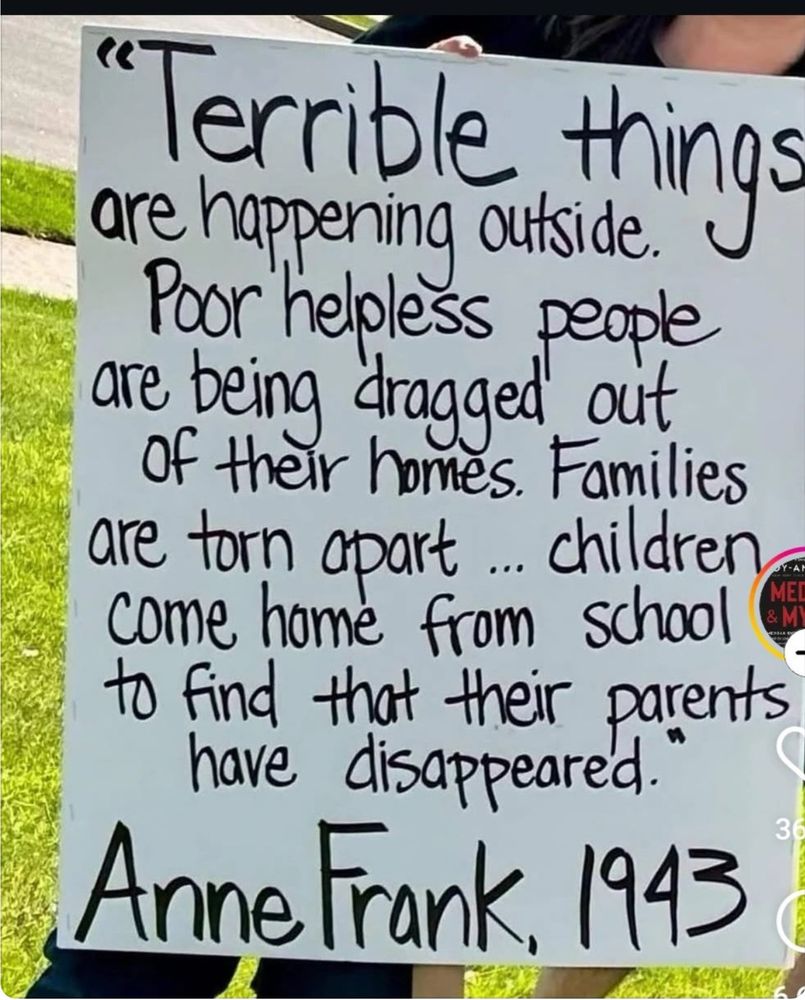 “Terrible things
are happening outside.
Poor helpless people
are being dragged out
of their homes. Families
are torn apart ... children
come home from school
to find that their parents
have disappeared."
Anne Frank, 1943
MED
& MY
36